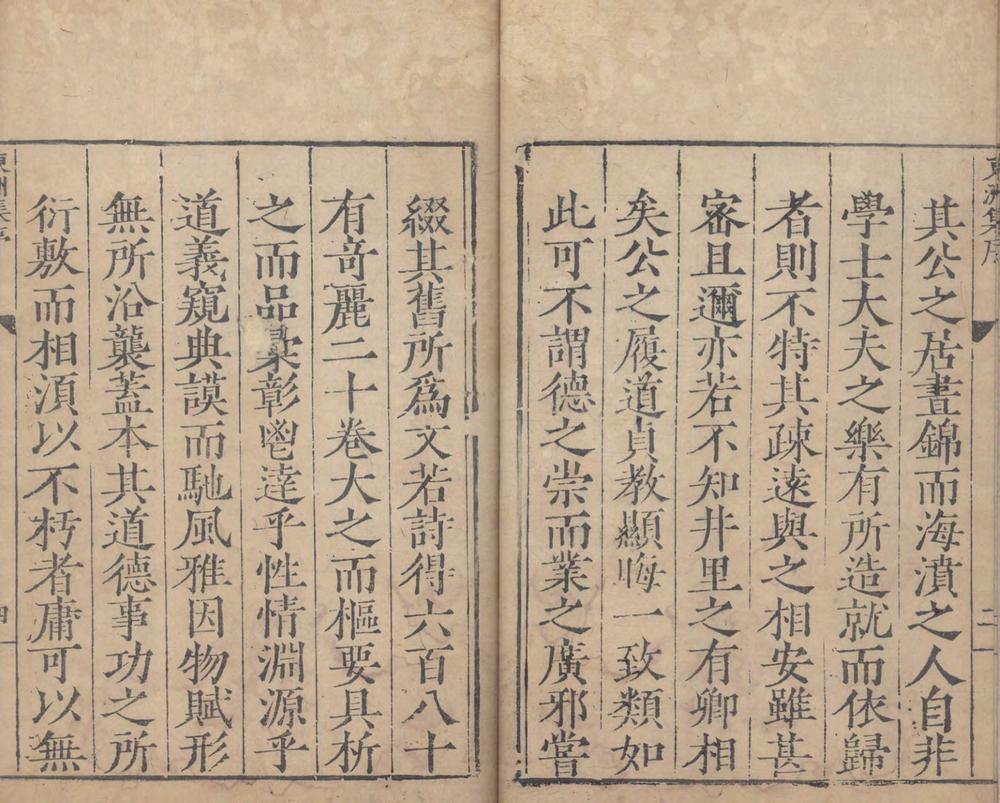 東洲集序
二
其公之居晝錦而海濆之人自非
學士大夫之樂有所造就而依歸
者則不特其疎遠與之相安雖甚
審且邇亦若不知井里之有卿相
矣公之履道貞教顯晦一致類如
此可不謂德之崇而業之廣邪嘗
綴其舊所爲文若詩得六百八十
有竒麗二十卷大之而樞要具析
之而品彚彰鬯逹乎性情淵源乎
道義窺典謨而馳風雅因物賦形
無所沿襲蓋本其道德事功之所
衍敷而相湏以不朽者庸可以無
東洲集序
四